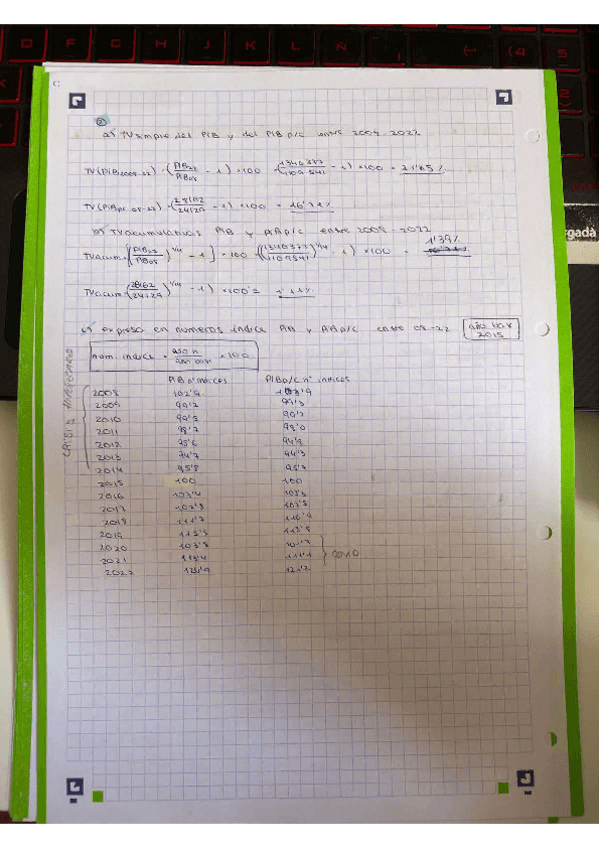 O F G H J K L Ñ
C
②
a) TV simple del PIB y del PIB p/c entre 2008-2022
TV (PIB 2008-22) = (PIB22/PIB08 - 1) × 100 = (1346377/1109541 - 1) × 100 = 21'85%
TV (PIBpc 08-22) = (28162/24129 - 1) × 100 = 16'71%
b) TV acumulativas PIB y PIB p/c entre 2008-2022
TV acum = [(PIB22/PIB08)^1/14 - 1] × 100 = ((1346377/1109541)^1/14 - 1) × 100 = 1'39%
TV acum = (28162/24129)^1/14 - 1) × 100 = 1'11%
c) expresa en números índice PIB y PIB p/c entre 08-22
año base 2015
num. indice = año n/año base × 100
PIB nº indices PIB p/c nº indices
2008 102'9 103'9
2009 99'2 99'3
2010 99'3 99'2
2011 98'7 98'0
2012 95'6 94'9
2013 94'7 94'3
2014 95'5 95'7
2015 100 100
2016 103'4 103'3
2017
2018 111'7
2019
2020 103'8
2021 111'1
2022 121'7
COVID
gada